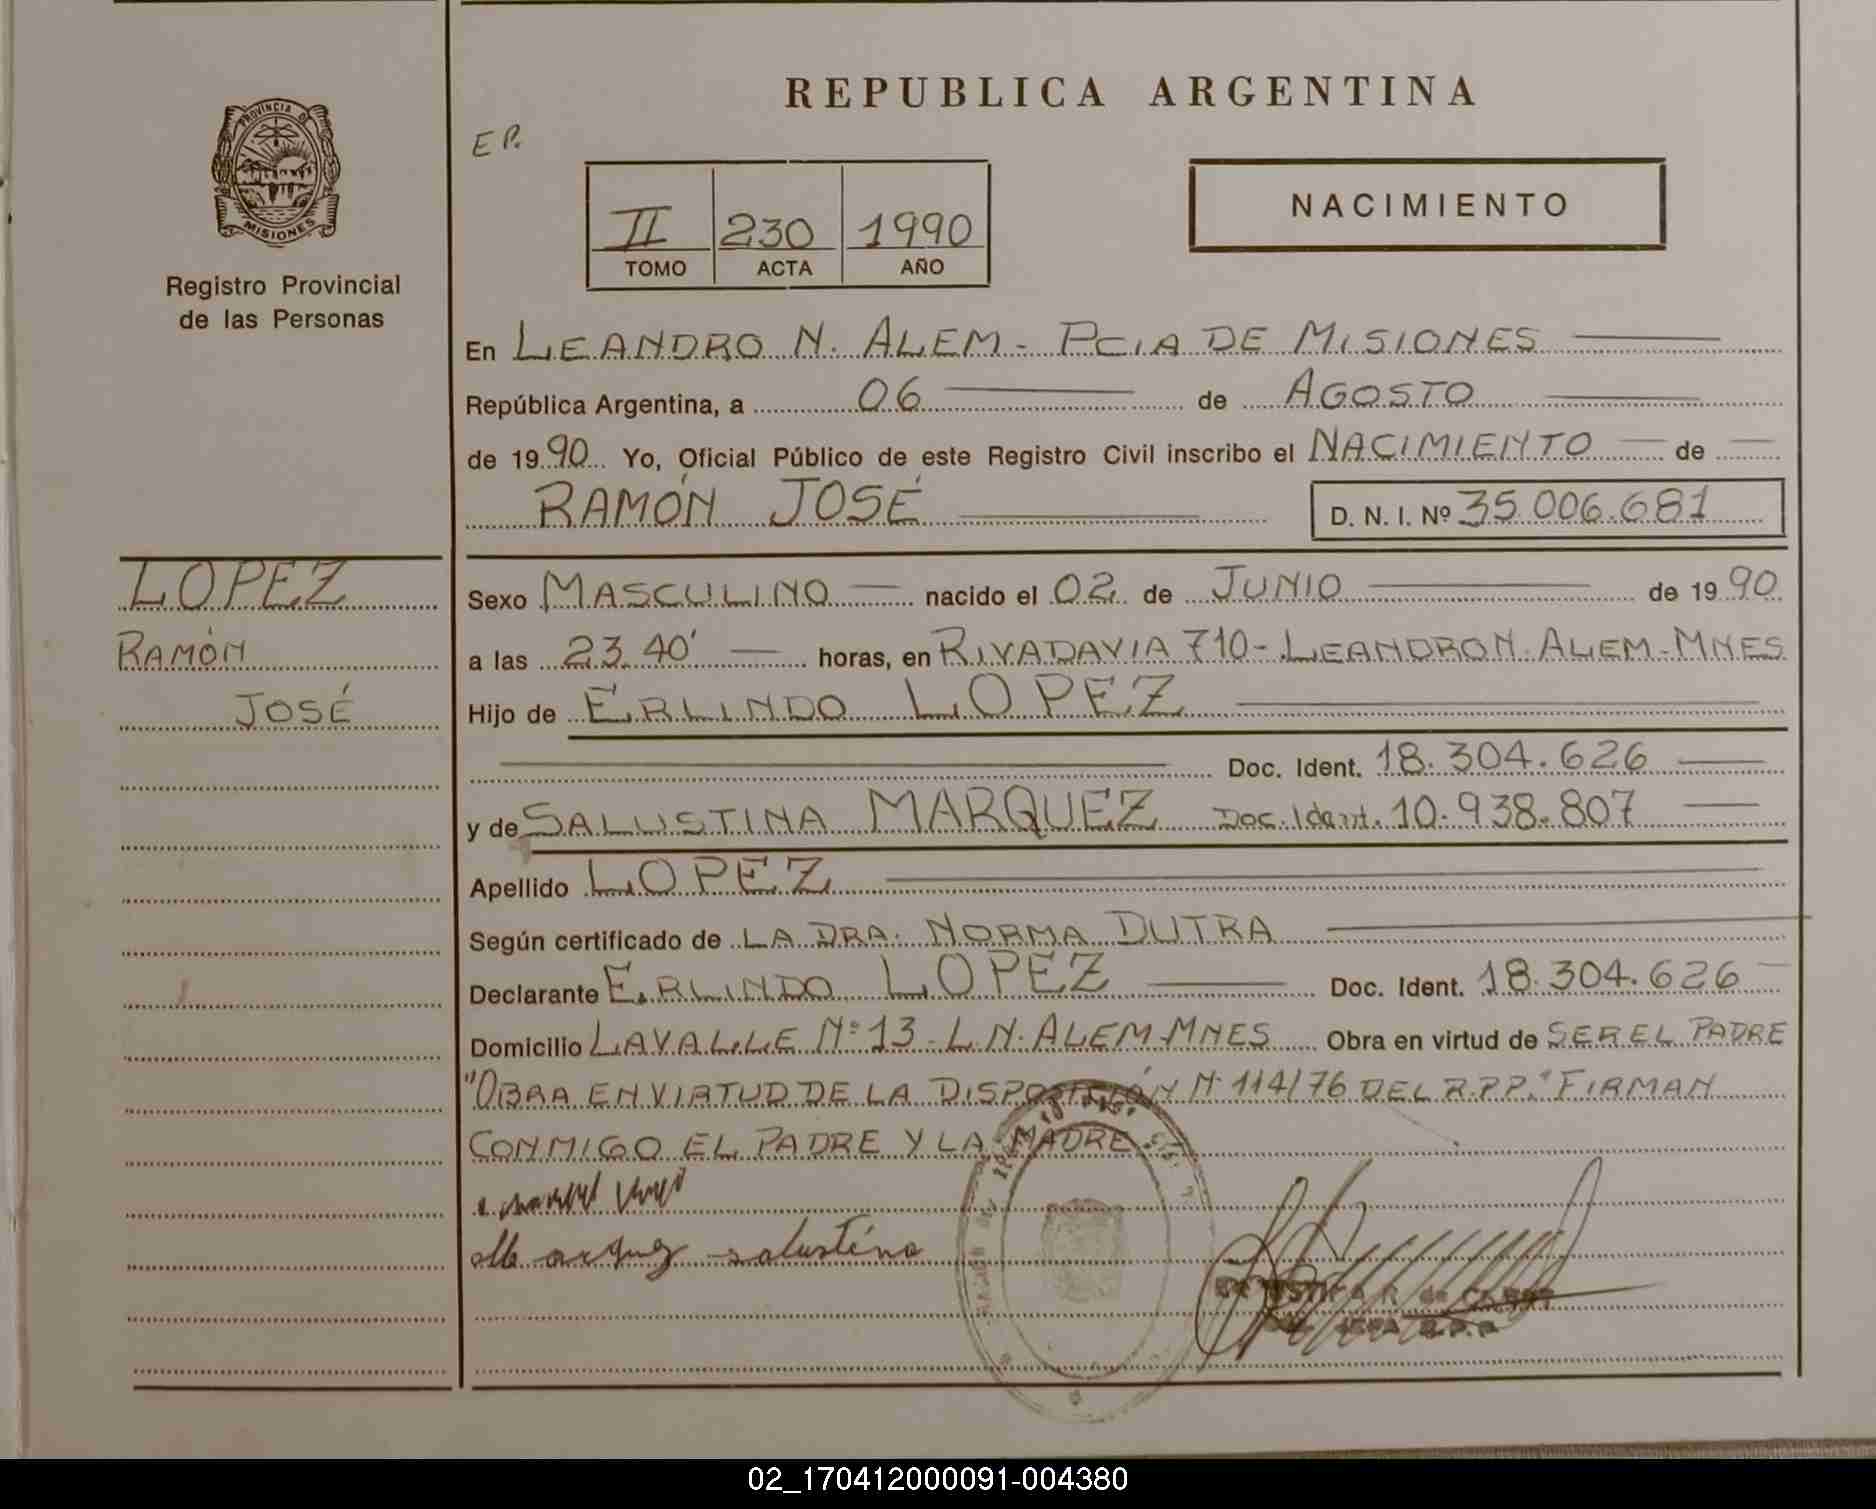 REPUBLICA ARGENTINA
E P.
PROVINCIA DE
MISIONES
Registro Provincial
de las Personas
II 230 1990
TOMO ACTA AÑO
NACIMIENTO
En LEANDRO N. ALEM - PCIA DE MISIONES
República Argentina, a 06 de AGOSTO
de 1990 Yo, Oficial Público de este Registro Civil inscribo el NACIMIENTO de
RAMÓN JOSÉ D. N. I. Nº 35.006.681
LOPEZ
RAMÓN
JOSÉ
Sexo MASCULINO nacido el 02 de JUNIO de 1990
a las 23.40' horas, en RIVADAVIA 710 - LEANDRO N. ALEM - MNES
Hijo de ERLINDO LOPEZ
Doc. Ident. 18.304.626
y de SALUSTINA MARQUEZ Doc. Ident. 10.938.807
Apellido LOPEZ
Según certificado de LA DRA. NORMA DUTRA
Declarante ERLINDO LOPEZ Doc. Ident. 18.304.626
Domicilio LAVALLE Nº 13 - L.N. ALEM - MNES Obra en virtud de SER EL PADRE
"OBRA EN VIRTUD DE LA DISPOSICIÓN Nº 114/76 DEL R.P.P." FIRMAN
CONMIGO EL PADRE Y LA MADRE
Marquez salustina
02_170412000091-004380